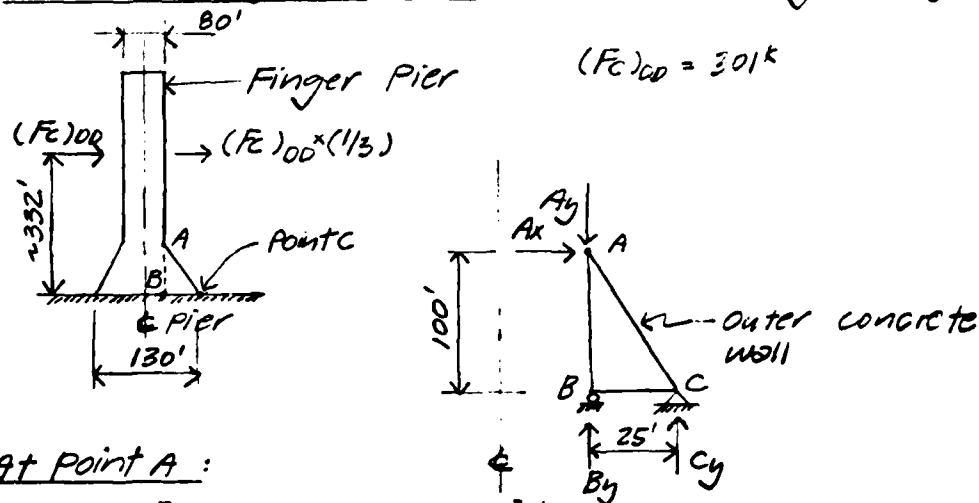 80'
Finger Pier
(Fc)OD = 301k
(Fc)OD
(Fc)OD x (1/3)
~332'
A
Point C
B
℄ Pier
130'
Ay
Ax
A
100'
outer concrete
wall
B
C
25'
℄
By
Cy
At Point A :